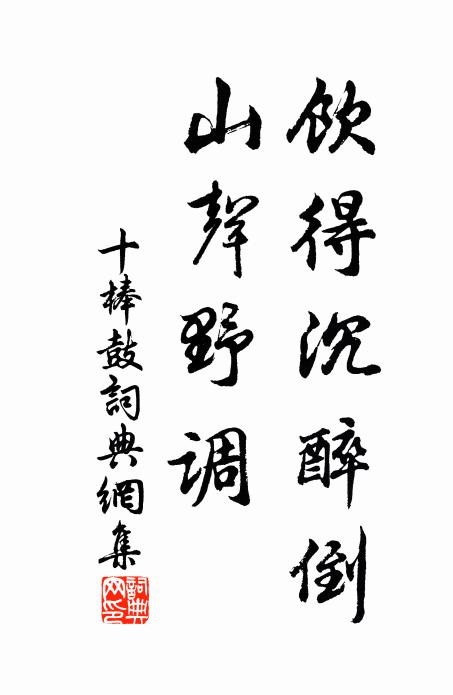 飲得沉醉倒
山聲野調
十棒鼓詞典網集
詞典網印